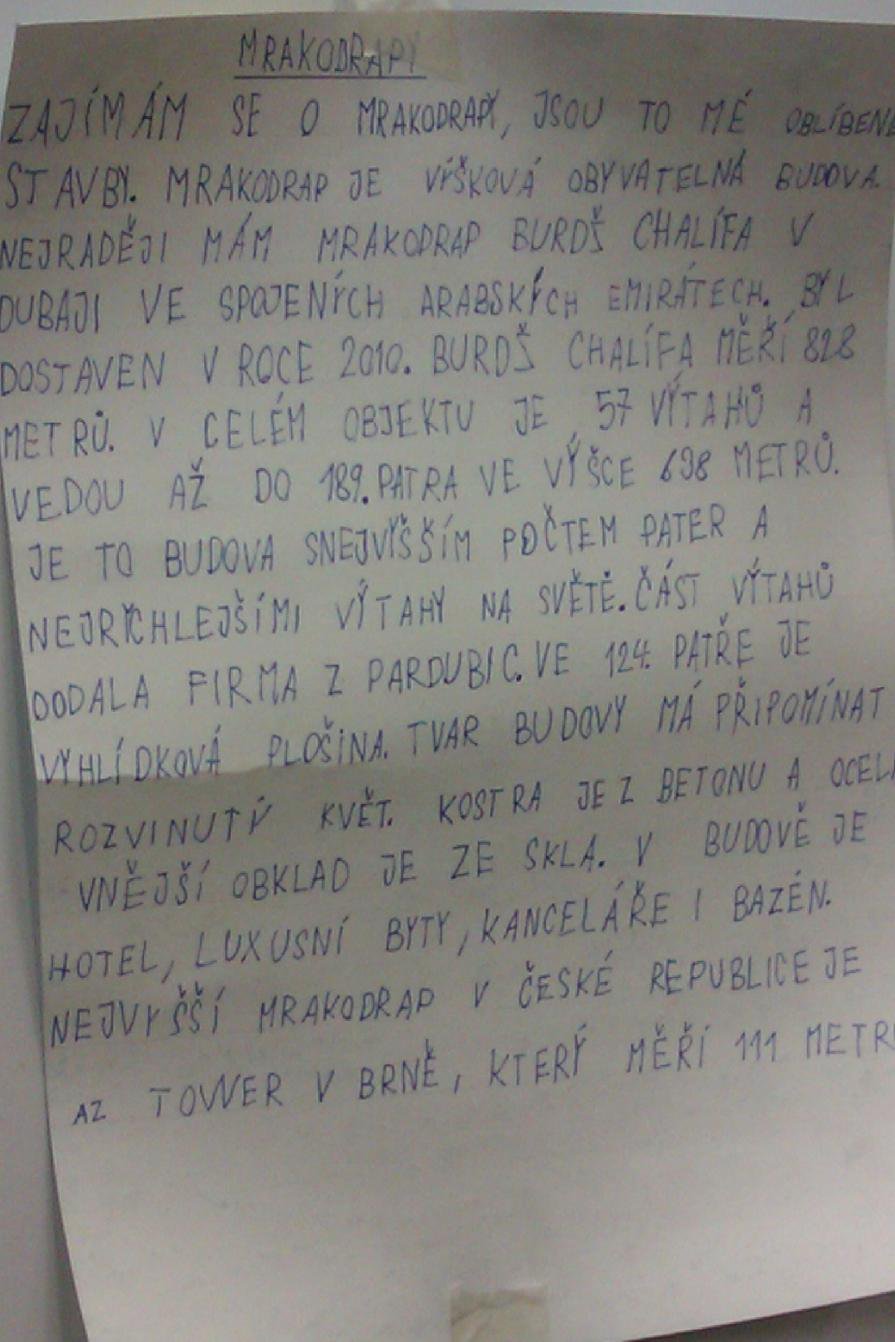 MRAKODRAPY
ZAJÍMÁM SE O MRAKODRAPY, JSOU TO MÉ OBLÍBENÉ
STAVBY. MRAKODRAP JE VÝŠKOVÁ OBYVATELNÁ BUDOVA.
NEJRADĚJI MÁM MRAKODRAP BURDŠ CHALÍFA V
DUBAJI VE SPOJENÝCH ARABSKÝCH EMIRÁTECH. BYL
DOSTAVEN V ROCE 2010. BURDŠ CHALÍFA MĚŘÍ 828
METRŮ. V CELÉM OBJEKTU JE 57 VÝTAHŮ A
VEDOU AŽ DO 189. PATRA VE VÝŠCE 638 METRŮ.
JE TO BUDOVA SNEJVYŠŠÍM POČTEM PATER A
NEJRYCHLEJŠÍMI VÝTAHY NA SVĚTĚ. ČÁST VÝTAHŮ
DODALA FIRMA Z PARDUBIC. VE 124. PATŘE JE
VYHLÍDKOVÁ PLOŠINA. TVAR BUDOVY MÁ PŘIPOMÍNAT
ROZVINUTÝ KVĚT. KOSTRA JE Z BETONU A OCELI
VNĚJŠÍ OBKLAD JE ZE SKLA. V BUDOVĚ JE
HOTEL, LUXUSNÍ BYTY, KANCELÁŘE I BAZÉN.
NEJVYŠŠÍ MRAKODRAP V ČESKÉ REPUBLICE JE
AZ TOWER V BRNĚ, KTERÝ MĚŘÍ 111 METR